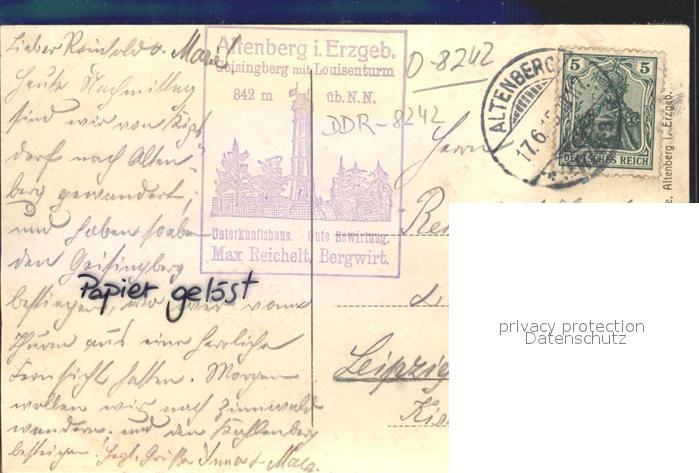 Lieber Reinhold u.
Heute Nachmittag
sind wir von Kips
dorf nach Alten
berg gewandert,
und haben soeben
den Geisingberg
bestiegen, wo wir vom
Thurm aus eine herrliche
Fernsicht hatten. Morgen
wollen wir nach Zinnwald
wandern und den Kahlenberg
besteigen. Hzgl. Grüße
Altenberg i. Erzgeb.
Geisingberg mit Louisenturm
842 m üb. N. N.
Unterkunftshaus. Gute Bewirtung.
Max Reichelt, Bergwirt.
O-8242
DDR-8242
Papier gelöst
ALTENBERG
17.6.
5 5
DEUTSCHES REICH
Herrn
Leipzig
Altenberg i. Erzgeb.
privacy protection
Datenschutz